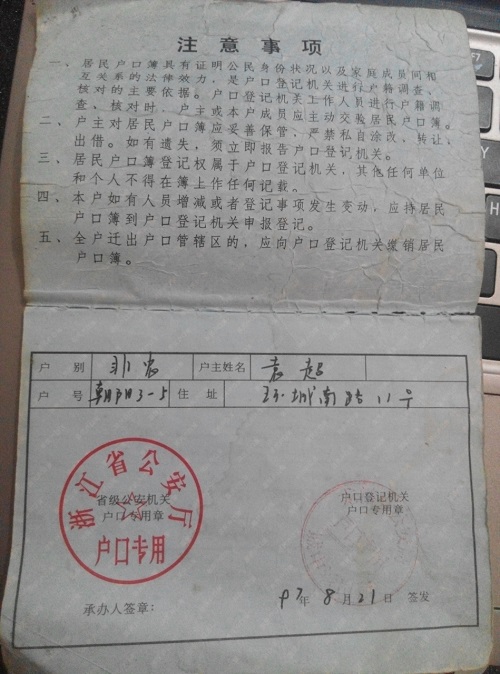 注意事项
一、居民户口簿具有证明公民身份状况以及家庭成员间相
互关系的法律效力，是户口登记机关进行户籍调查、
核对的主要依据。户口登记机关工作人员进行户籍调
查、核对时，户主或本户成员应主动交验居民户口簿。
二、户主对居民户口簿应妥善保管，严禁私自涂改、转让、
出借。如有遗失，须立即报告户口登记机关。
三、居民户口簿登记权属于户口登记机关，其他任何单位
和个人不得在簿上作任何记载。
四、本户如有人员增减或者登记事项发生变动，应持居民
户口簿到户口登记机关申报登记。
五、全户迁出户口管辖区的，应向户口登记机关缴销居民
户口簿。
户别 非农 户主姓名 袁超
户号 朝阳3-5 住址 环城南路11号
浙江省公安厅
省级公安机关
户口专用章
户口专用
户口登记机关
户口专用章
承办人签章：
97年8月21日 签发